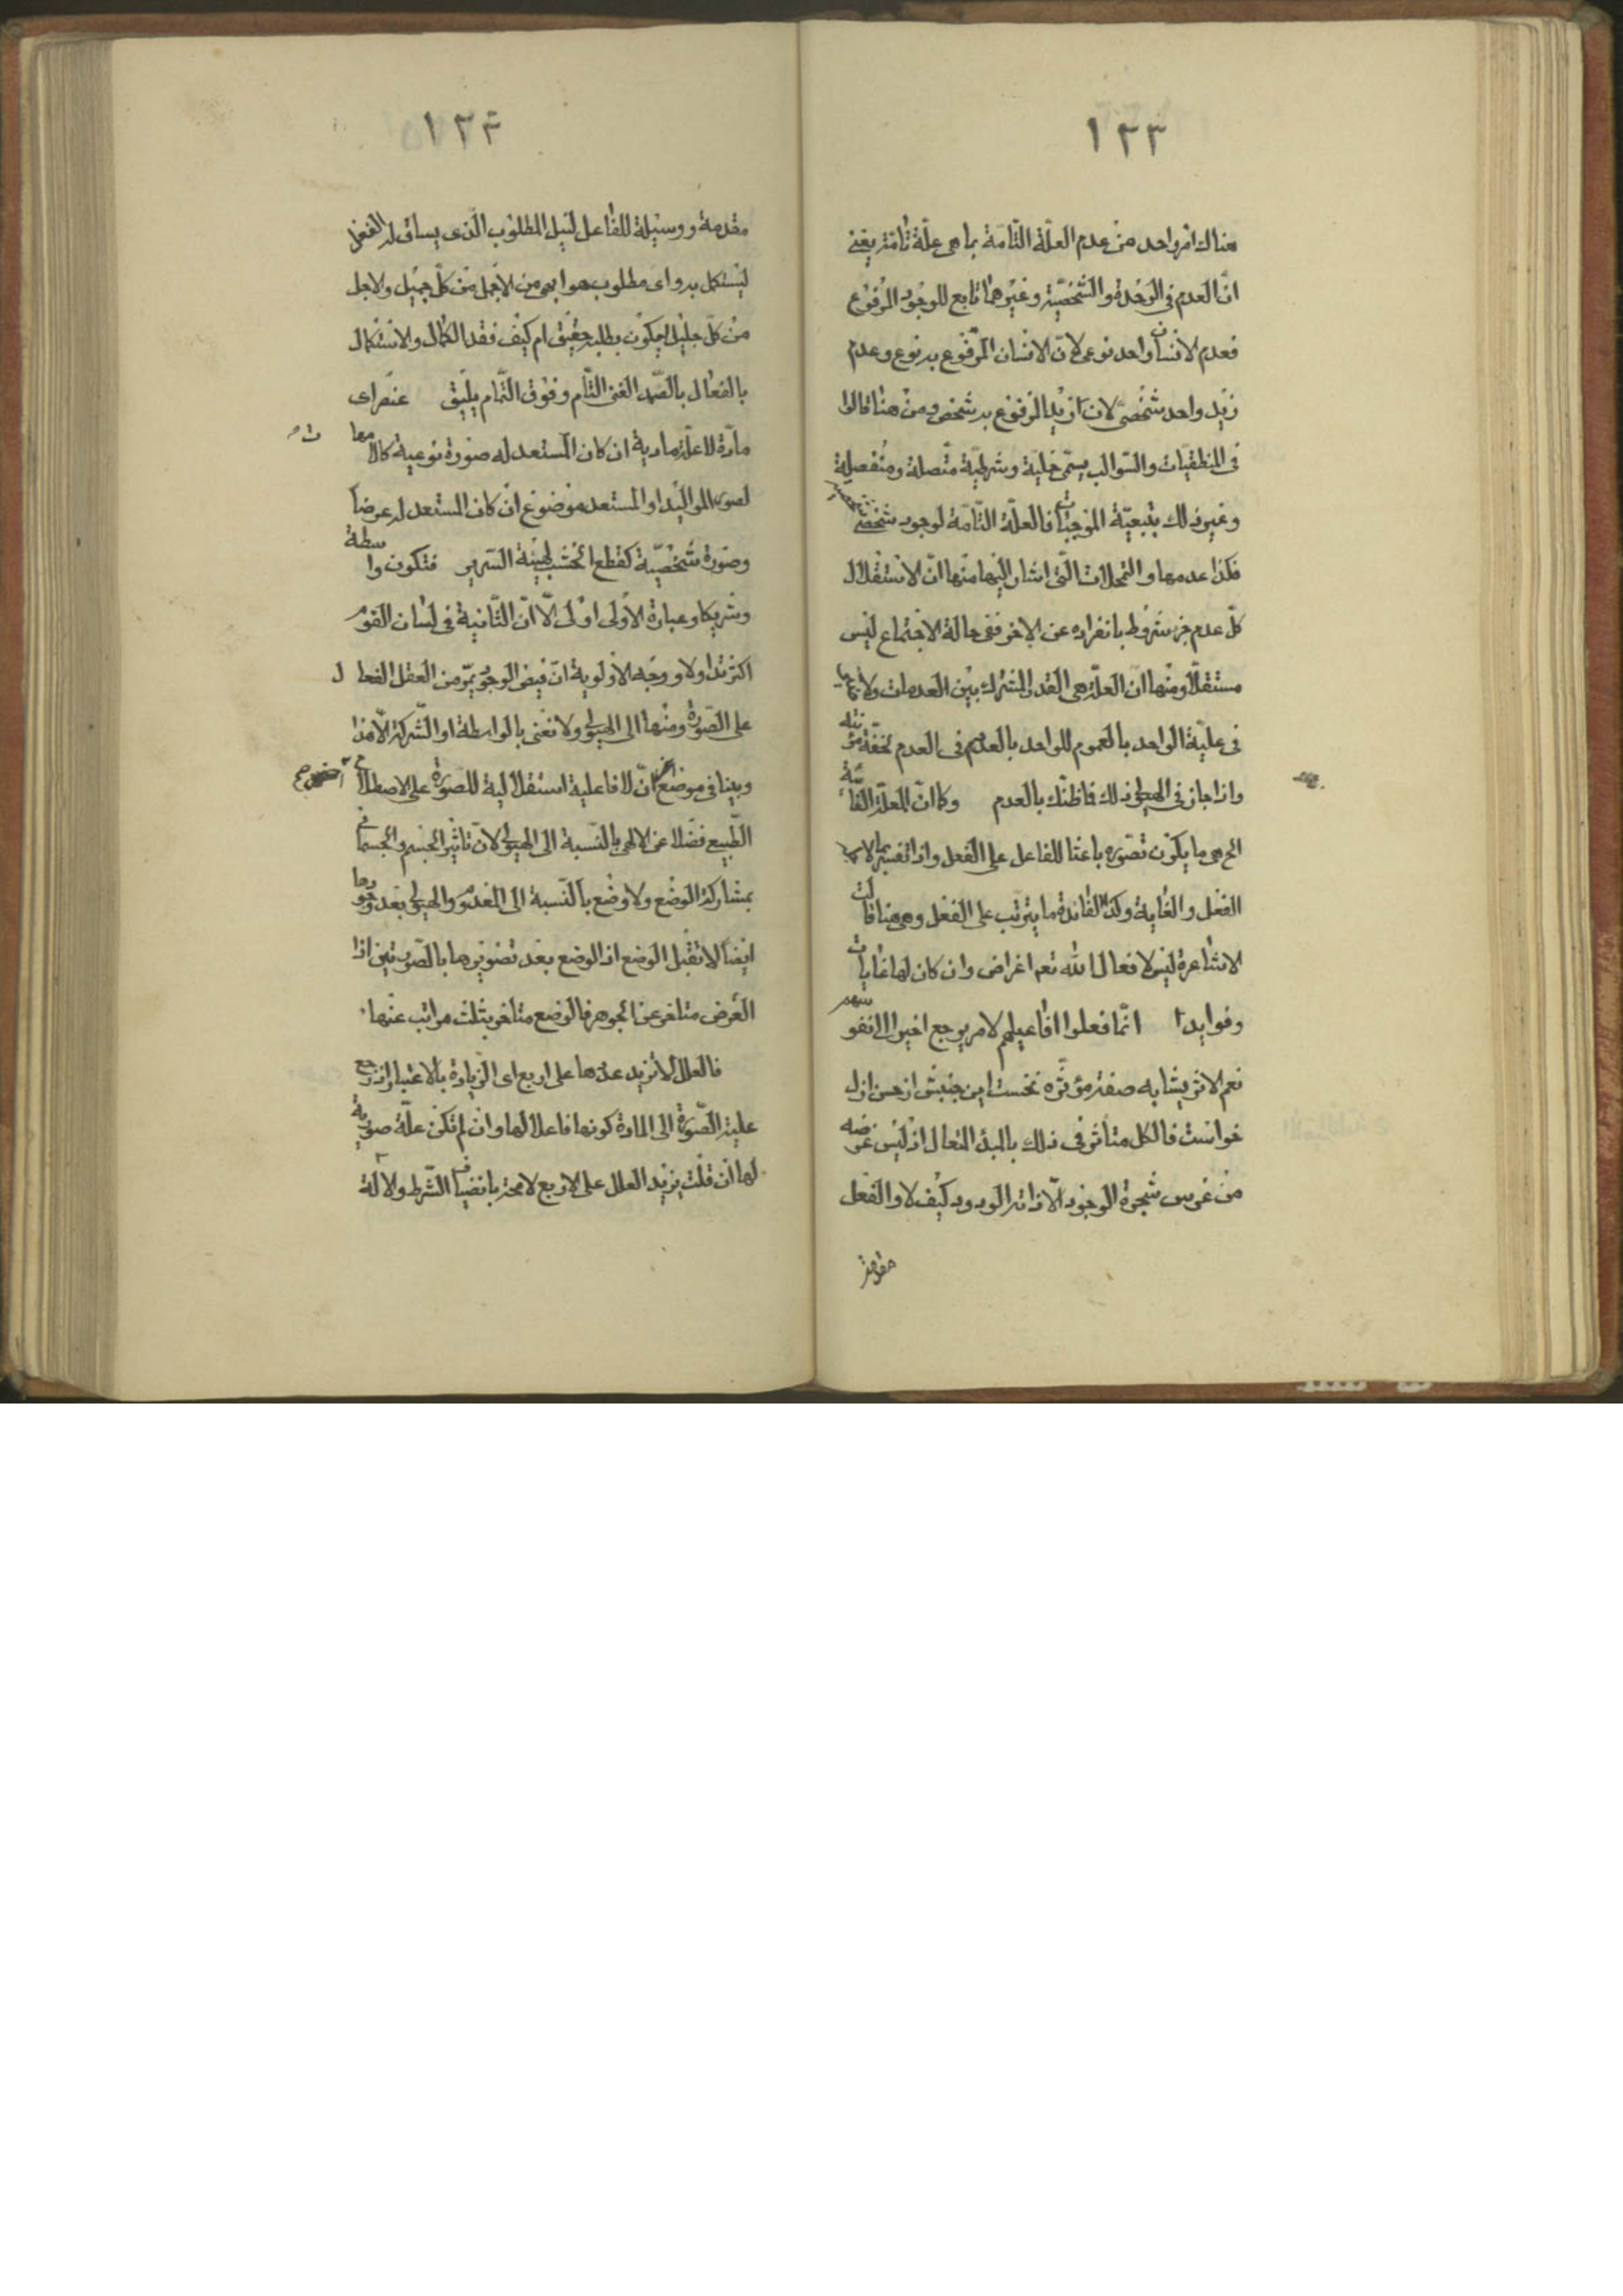 ١٢٣
هناك امر واحد من عدم العلّة التّامة بما هى علّة تامّة يعنى
انّ العدم فى الوحدة والشّخصيّة وغيرهما تابع للوجود المرفوع
فعدم الانسان واحد نوعى لانّ الانسان المرفوع به نوع وعدم
زيد واحد شخصىّ لان زيدا المرفوع به شخص ومن هنا قالوا
فى المنطقيّات والسّوالب يسمّى حمليّة وشرطيّة متّصلة ومنفصلة
وغير ذلك بتبعيّة الموجبات فالعلّة التّامّة لوجود شخصى
فكذا عدمها والتمحلات الّتى اشار اليها منها انّ الاستقلال
كلّ عدم جزء مشروط بانفراده عن الاخر ففى حالة الاجتماع ليس
مستقلّا ومنها انّ العلّة هى القدر المشترك بين العدمات ولا
فى عليّة الواحد بالعموم للواحد بالعدد فى العدم لخفّة مؤنته
واذا جاز فى الهيولى ذلك فما ظنّك بالعدم وكما انّ العلّة الغائيّة
الخ هى ما يكون تصوّره باعثا للفاعل على الفعل واذا تفسير
الفعل والغاية وكذا الفائدة ما يترتب على الفعل ومن هنا قالت
الاشاعرة ليس لافعال الله تعم اغراض وان كان لها غايات
وفوايد انّما فعلوا افاعيلهم لامر يرجع اخيرا الى انفوسهم
نعم الاثر يشابه صفة مؤثّره نخست اين جنبش از حسن ازل
خواست فالكل متأثر فى ذلك بالمبدء المتعال اذ ليس غرضه
من غرس شجرة الوجود الّا ذاته الودود كيف لا والفعل
مقدمة
١٢٤
مقدمة ووسيلة للفاعل لنيل المطلوب الّذى يساق له الفعل
ليستكمل به واى مطلوب هو ابهى من الاجمل من كلّ جميل والاجل
من كلّ جليل ليكون بطلبه حقيق ام كيف فقد الكمال والاستكمال
بالفعال بالصّمد الغنى التّام وفوق التّمام يليق عنصر اى
مادّة لا علّة مادية ان كان المستعد له صورة نوعية كالامهات
لصور المواليد او المستعد موضوع ان كان المستعد له عرضا
وصورة شخصيّة كقطع الخشب لهيئة السّرير فتكون واسطة
وشريكا وعبارة الاولى اولى الّا انّ الثّانية فى لسان القوم
اكثر تداولا ووجه الاولوية انّ فيض الوجود يمرّ من العقل الفعال
على الصّورة ومنها الى الهيولى ولا نعنى بالواسطة او الشّركة الّا هذا
وبينا فى موضع اخر انّ لا فاعلية استقلالية للصّورة على الاصطلاح
الطّبيعى فضلا عن الالهى بالنّسبة الى الهيولى لانّ تاثير الجسم والجسمانى
بمشاركة الوضع ولا وضع بالنّسبة الى المعدوم والهيولى بعد وجودها
ايضا لا تقبل الوضع اذ الوضع بعد تصويرها بالصّورتين اذا
العرض متاخر عن الجوهر فالوضع متاخر بثلث مراتب عنها
فالعلل لا تزيد عددها على اربع اى الزّيادة بالاعتبار اذ مرجع
علية الصّورة الى المادة كونها فاعلا لها وان لم تكن علّة صورية
لها ان قلت يزيد العلل على الاربع لا محة بانضياف الشّرط والالة